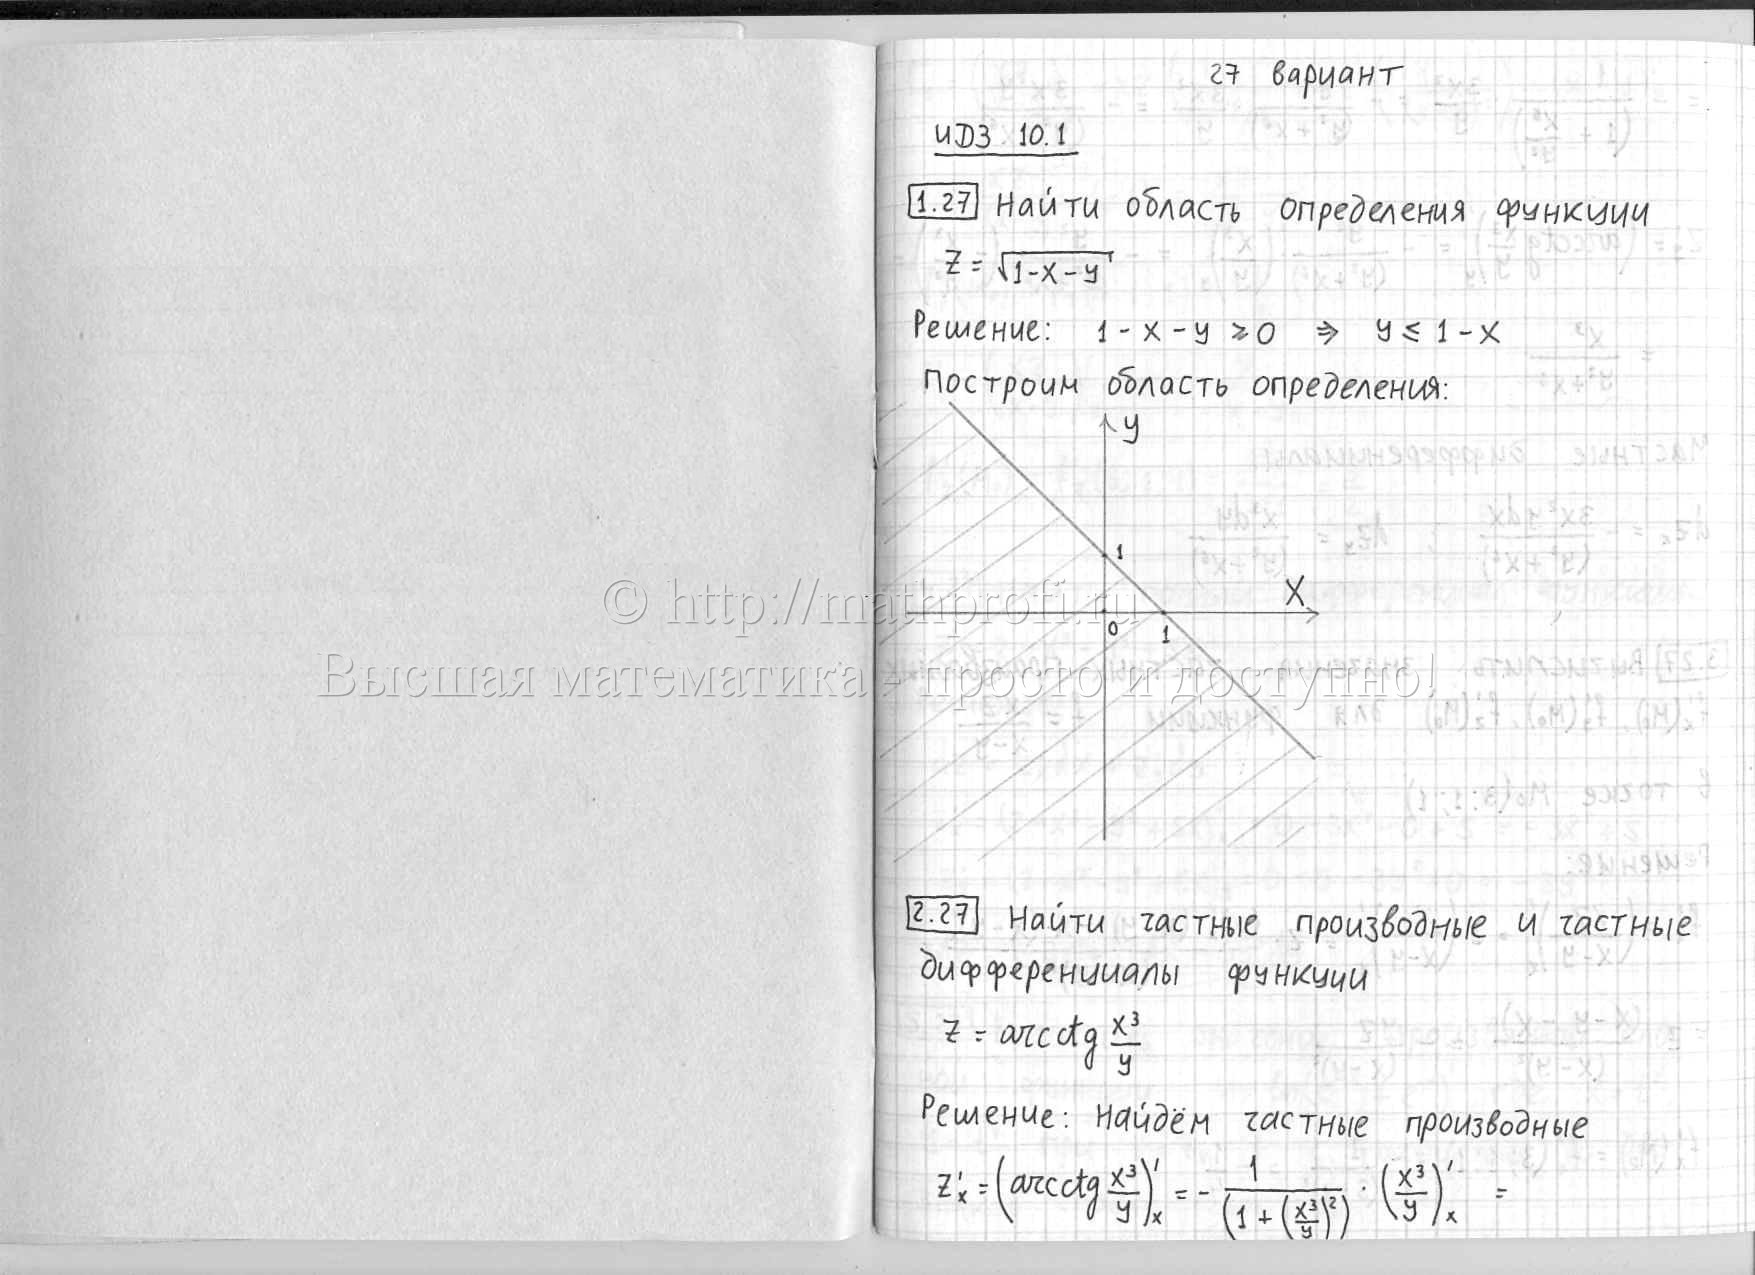 27 вариант
ИДЗ 10.1
1.27 Найти область определения функции
z = √(1-x-y)
Решение: 1-x-y ≥ 0 ⇒ y ≤ 1-x
Построим область определения:
y
1
x
0
1
© http://mathprofi.ru
Высшая математика - просто и доступно!
2.27 Найти частные производные и частные
дифференциалы функции
z = arcctg x³/y
Решение: Найдём частные производные
z'ₓ = (arcctg x³/y)'ₓ = - 1/(1+(x³/y)²) · (x³/y)'ₓ =